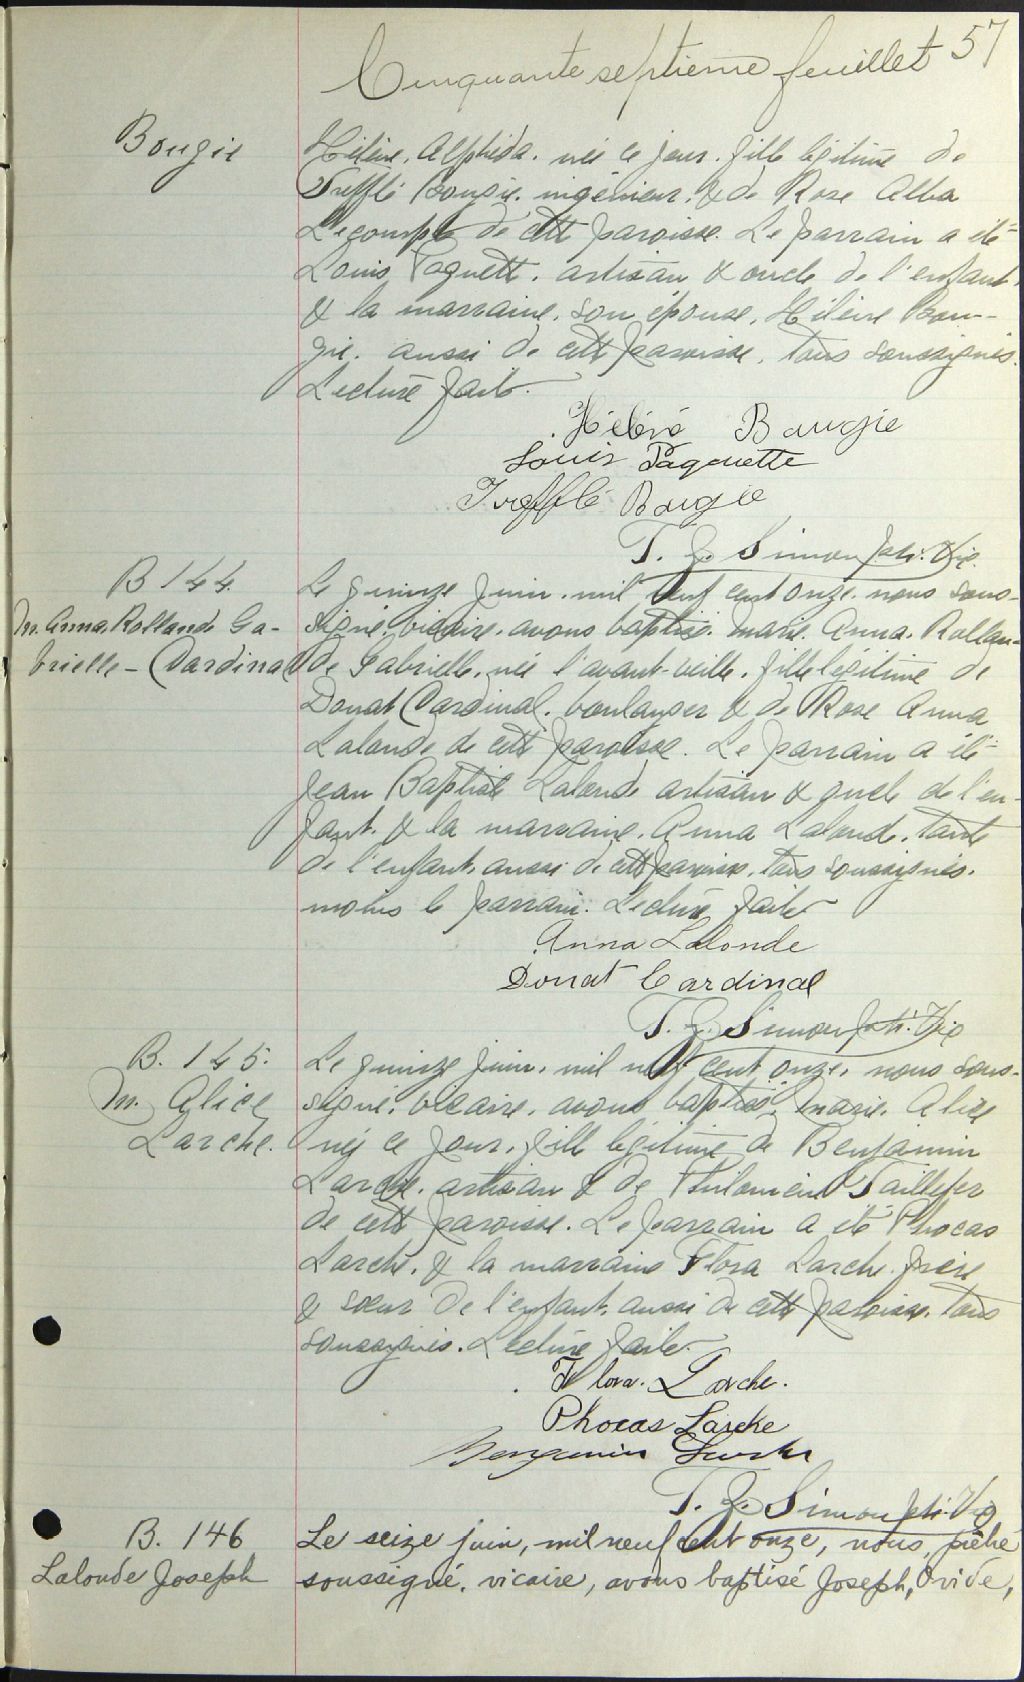 Cinquante septième feuillet 57
Bougie
Hélène, Alphéda. née ce jour. fille légitime de
Trefflé Bougie. ingénieur. & de Rose Alba
Lecompte de cette paroisse. Le parrain a été
Louis Paquette. artisan & oncle de l'enfant.
& la marraine. son épouse. Hélène Bou-
gie. aussi de cette paroisse. tous soussignés.
Lecture faite.
Hélène Bougie
Louis Paquette
Trefflé Bougie
T. Z. Simon ptr. Vic.
B 144.
M. Anna. Rollande Ga-
brielle - Cardinal
Le quinze juin. mil neuf cent onze. nous sous-
signé. vicaire. avons baptisé. Marie. Anna. Rollan-
de Gabrielle. née l'avant-veille. fille légitime de
Donat Cardinal. boulanger & de Rose Anna
Lalonde de cette paroisse. Le parrain a été
Jean Baptiste Lalonde artisan & oncle de l'en-
fant. & la marraine. Anna Lalonde. tante
de l'enfant. aussi de cette paroisse. tous soussignés.
moins le parrain. Lecture faite
Anna Lalonde
Donat Cardinal
T. Z. Simon ptr. Vic
B. 145.
M. Alice
Larche.
Le quinze juin. mil neuf cent onze. nous sous-
signé. vicaire. avons baptisé. Marie. Alice
née ce jour. fille légitime de Benjamin
Larche. artisan & de Philomène Taillefer
de cette paroisse. Le parrain a été Phocas
Larche. & la marraine Flora Larche. frère
& sœur de l'enfant. aussi de cette paroisse. tous
soussignés. Lecture faite.
Flora. Larche.
Phocas Larche
Benjamin Larche
T. Z. Simon ptr. Vic
B. 146
Lalonde Joseph
Le seize juin, mil neuf cent onze, nous, prêtre
soussigné, vicaire, avons baptisé Joseph, Ovide,